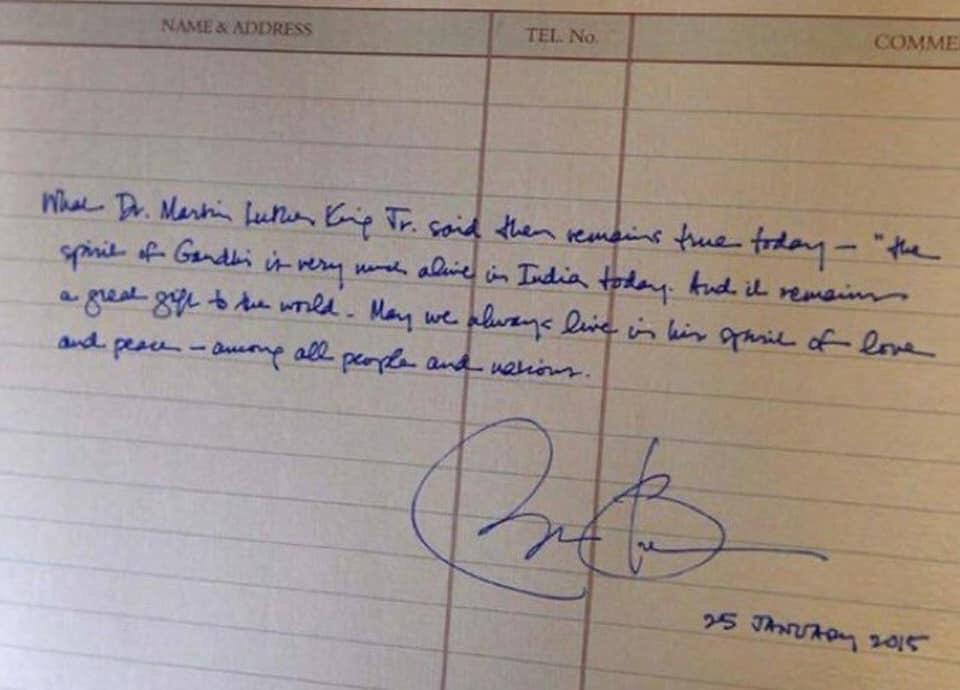 NAME & ADDRESS TEL. No. COMME
What Dr. Martin Luther King Jr. said then remains true today — "the
spirit of Gandhi is very much alive in India today. And it remains
a great gift to the world. May we always live in his spirit of love
and peace — among all people and nations.
25 JANUARY 2015